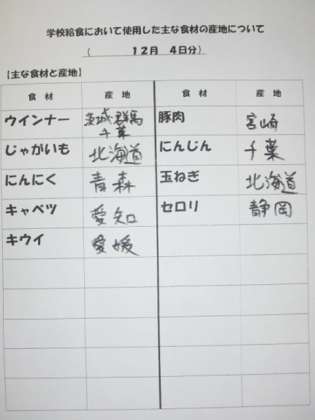 学校給食において使用した主な食材の産地について
( 12月 4日分)
【主な食材と産地】
食材 産地 食材 産地
ウインナー 茨城 群馬 千葉 豚肉 宮崎
じゃがいも 北海道 にんじん 千葉
にんにく 青森 玉ねぎ 北海道
キャベツ 愛知 セロリ 静岡
キウイ 愛媛